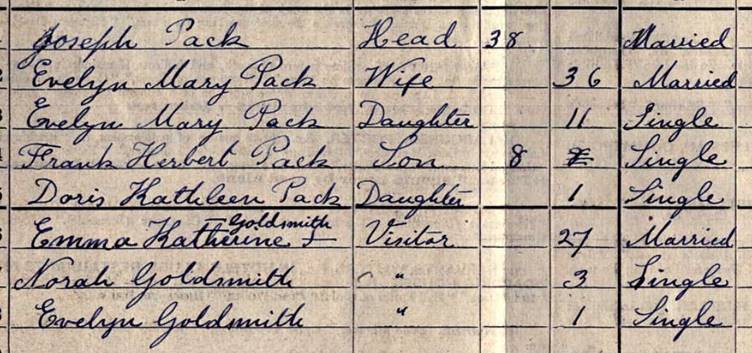 Joseph Pack Head 38 Married
Evelyn Mary Pack Wife 36 Married
Evelyn Mary Pack Daughter 11 Single
Frank Herbert Pack Son 8 Single
Doris Kathleen Pack Daughter 1 Single
Goldsmith
Emma Katherine Visitor 27 Married
Norah Goldsmith " 3 Single
Evelyn Goldsmith " 1 Single